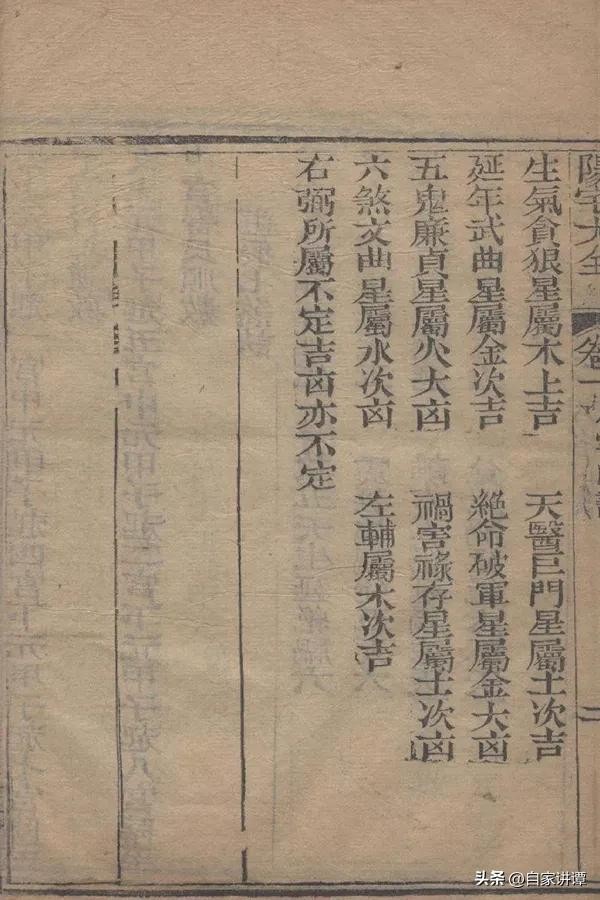 陽宅大全 卷一
二
生氣貪狼星屬木上吉 天醫巨門星屬土次吉
延年武曲星屬金次吉 絕命破軍星屬金大凶
五鬼廉貞星屬火大凶 禍害祿存星屬土次凶
六煞文曲星屬水次凶 左輔屬木次吉
右弼所屬不定吉凶亦不定
头条 @自家讲谭